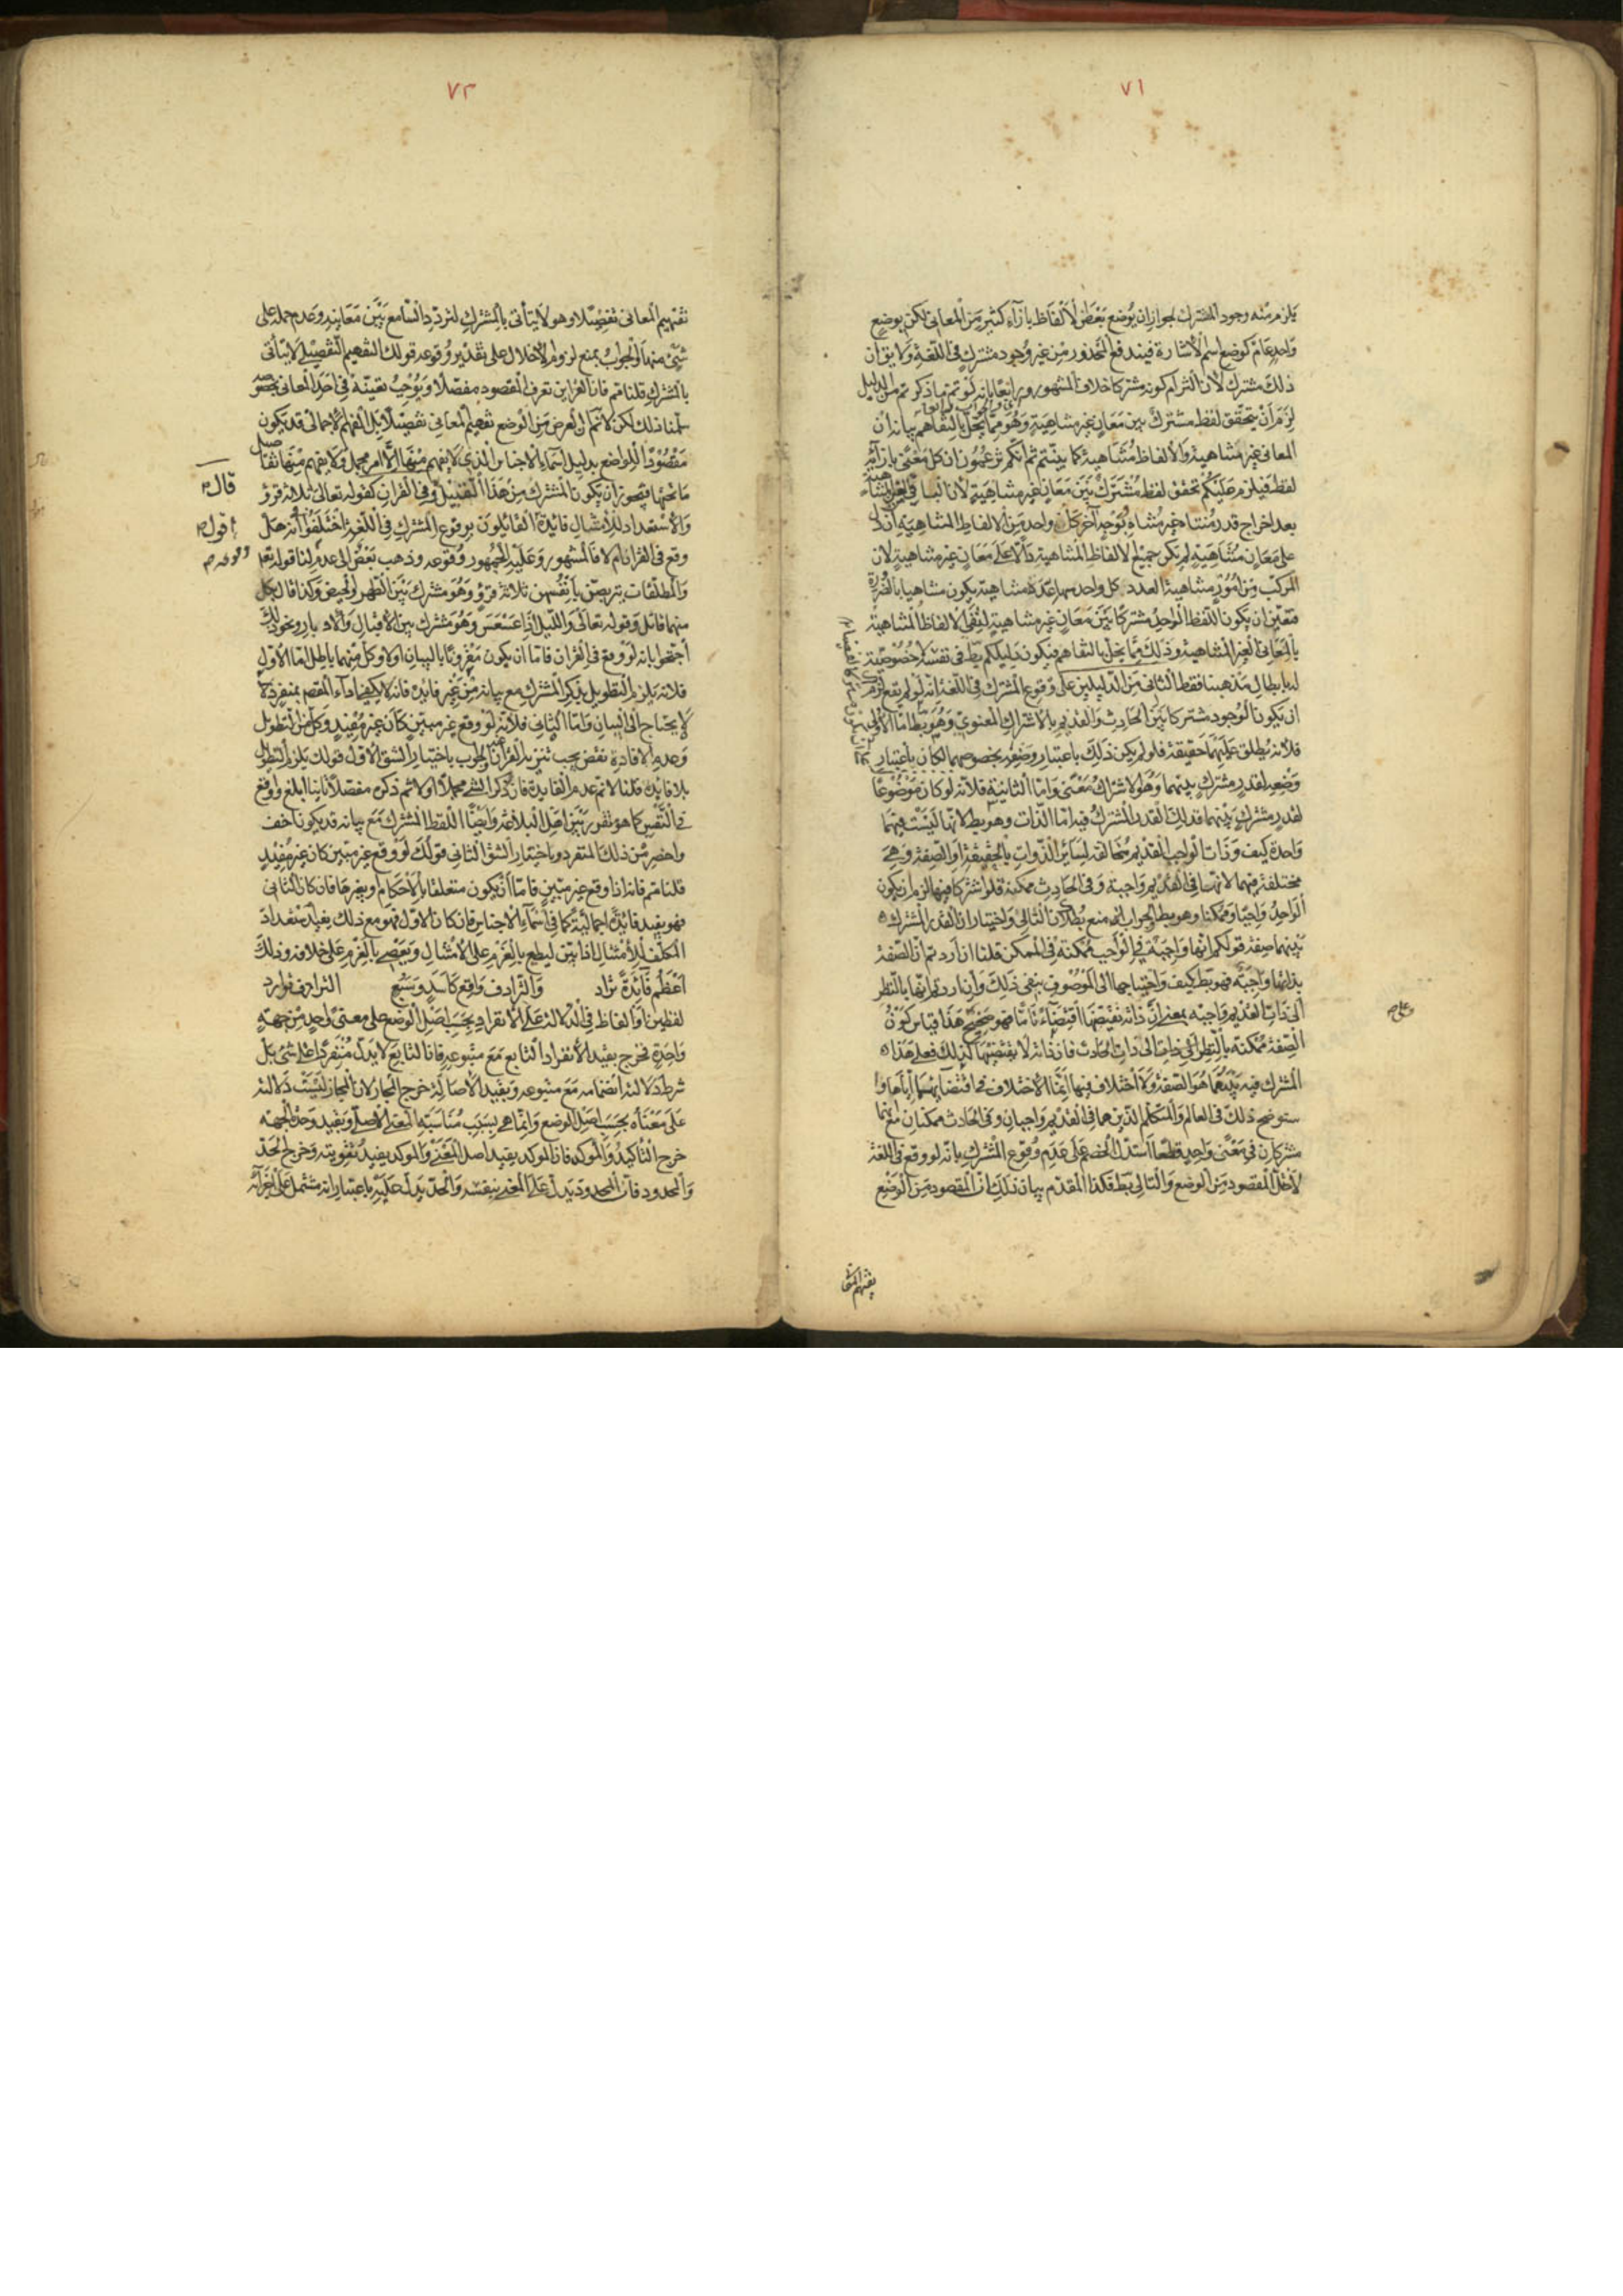 ٧١
يلزم منه وجود المشترك لجواز ان يوضع بعض الألفاظ بازاء كثير من المعانى لكن بوضع
واحد عام كوضع اسم الأشارة فيندفع المحذور من غير وجود مشترك فى اللغة ولا يق ان
ذلك مشترك لان التزام كونه مشتركا خلاف المشهور وايضا بانه لو تم ما ذكرتم من الدليل
لزم أن يتحقق لفظ مشترك بين معان غير متناهية وهو مما يخل بالتفاهم بيانه ان
المعانى غير متناهية والألفاظ متناهية كما بينتم ثم انكم تزعمون ان كل معنى بازائه
لفظ فيلزم عليكم تحقق لفظ مشترك بين معان غير متناهية لان الباقى
بعد اخراج قدر متناه غير متناه لو وجد اخر كل واحد من الالفاظ المتناهية ان دل
على معان متناهية لم يكن جميع الالفاظ المتناهية دالا على معان غير متناهية لان
المركب من امور متناهية العدد كل واحد منها عدة متناهية يكون متناهيا بالضرورة
فتعين ان يكون اللفظ الواحد مشتركا بين معان غير متناهية لتفى الالفاظ المتناهية
بالمعانى الغير المتناهية وذلك مما يخل بالتفاهم فيكون دليلكم بط فى نفسه
لنا بابطال مذهبنا فقط الثانى من الدليلين على وقوع المشترك فى اللغة انه لو لم يقع لزم
ان يكون الوجود مشتركا بين الحادث والقديم بالاشتراك المعنوى وهو بط اما الاولى
فلانه يطلق عليهما حقيقة فلو لم يكن ذلك باعتبار وضعه بخصوصهما لكان باعتبار
وضعه لقدر مشترك بينهما وهو الاشتراك معنى واما الثانية فلانه لو كان موضوعا
لقدر مشترك بينهما فذلك القدر المشترك فيه اما الذات وهو بط لانها ليست فيهما
واحدة كيف وذات الواجب القديم مخالفة لساير الذوات بالحقيقة او الصفة وهى
مختلفة فيهما لانها فى القديم واجبة وفى الحادث ممكنة فلو اشتركا فيها لزم ان يكون
الواحد واجبا وممكنا وهو بط والجواب انه منع بطلان التالى ولختيار ان القدر المشترك
بينهما صفة قولكم انها واجبة فى الواجب ممكنة فى الممكن قلنا ان اردتم ان الصفة
بذاتها واجبة فهو بط كيف واحتياجها الى الموصوف ينفى ذلك وان اردتم انها بالنظر
الى ذات القديم واجبة بمعنى ان ذاته تقتضيها اقتضاء تاما فهو صحيح هذا قياس كون
الصفة ممكنة بالنظر الى ذات الحادث فان ذاته لا يقتضيها كذلك فعلى هذا
المشترك فيه بينهما هو الصفة ولا اختلاف فيها انما الاختلاف فى اقتضائهما اياها و
ستوضح ذلك فى العالم والمتكلم الذين هما فى القديم واجبان وفى الحادث ممكنان مع انهما
مشتركان فى معنى واحد قطعا استدل الخصم على عدم وقوع المشترك بانه لو وقع فى اللغة
لأخل المقصود من الوضع والتالى بط فكذا المقدم بيان ذلك ان المقصود من الوضع
وعلى هـ
٧٢
تفهيم المعانى تفصيلا وهو لا يتأتى بالمشترك لتردد السامع بين معانيه وعدم حمله على
شىء منها والجواب بمنع لزوم الاخلال على تقدير وقوعه قولك التفهيم التفصيلى لا يتأتى
بالمشترك قلنا نعم فان القراين تعرف المقصود مفصلا ويوجب تعيينه فى احد المعانى بخصوصه
سلمنا ذلك لكن لا نم ان الغرض من الوضع تفهيم المعانى تفصيلا بل التفهيم الاجمالى قد يكون
مقصودا للواضع بدليل اسماء الاجناس الذى لا يفهم منها الا امر مجمل ولا يفهم منها تفاصيل
ما تحتها فيجوز ان يكون المشترك من هذا القبيل وفى القران كقوله تعالى ثلاثة قروء
والاستعداد للامتثال فائدة القائلون بوقوع المشترك فى اللغة اختلفوا انه هل
وقع فى القران ام لا فالمشهور وعليه الجمهور وقوعه وذهب بعض الى عدمه لنا قوله تعه
والمطلقات يتربصن بانفسهن ثلاثة قروء وهو مشترك بين الطهر والحيض وكذا قال بكل
منهما قائل وقوله تعالى والليل اذا عسعس وهو مشترك بين الاقبال والادبار ونحو ذلك
احتجوا بانه لو وقع فى القران فاما ان يكون مقرونا بالبيان اولا وكل منهما باطل اما الاول
فلانه يلزم التطويل بذكر المشترك مع بيانه من غير فايدة فانه لا يكفى اداء المقصد بمنفرد
لا يحتاج الى البيان واما الثانى فلانه لو وقع غير مبين كان غير مفيد وكل من التطويل
وعدم الافادة نقض يجب تنزيه القران عنه والجواب باختيار الشق الاول قولك يلزم التطويل
بلا فايدة قلنا لا نم عدم الفايدة فان ذكر الشىء مجملا اولا ثم ذكره مفصلا ثانيا ابلغ واوقع
فى النفس كما هو مقرر بين اهل البلاغة وايضا اللفظ المشترك مع بيانه قد يكون اخف
واخصر من ذلك المنفرد وباختيار الشق الثانى قولك لو وقع غير مبين كان غير مفيد
قلنا نعم فانه اذا وقع غير مبين فاما ان يكون متعلقا بالاحكام او بغيرها فان كان الثانى
فهو يفيد فائدة اجمالية كما فى اسماء الاجناس فان كان الاول فهو مع ذلك يفيد استعداد
المكلف للامتثال اذا بين ليطيع بالعزم على الامتثال ويعصى بالعزم على خلافه وذلك
اعظم فائدة تراد والترادف واقع كاسد وسبع الترادف توارد
لفظين او الفاظ فى الدلالة على الانفراد بحسب اصل الوضع على معنى واحد من جهة
واحدة فخرج بقيد الانفراد التابع مع متبوعه فان التابع لا يدل منفردا على شىء بل
شرط دلالته انضمامه مع متبوعه وبقيد الاصالة خرج المجاز لان المجاز ليست دلالته
على معناه بحسب اصل الوضع وانما هى بسبب مناسبته المعنى الاصلى وبقيد وحدة الجهة
خرج التاكيد والموكد فان الموكد يفيد اصل المعنى والموكد يفيد تقويته وخرج الحد
والمحدود فان المحدود يدل على المحدود بنفسه والحد يدل عليه باعتبار انه مشتمل على اجزائه
قال م
اقول